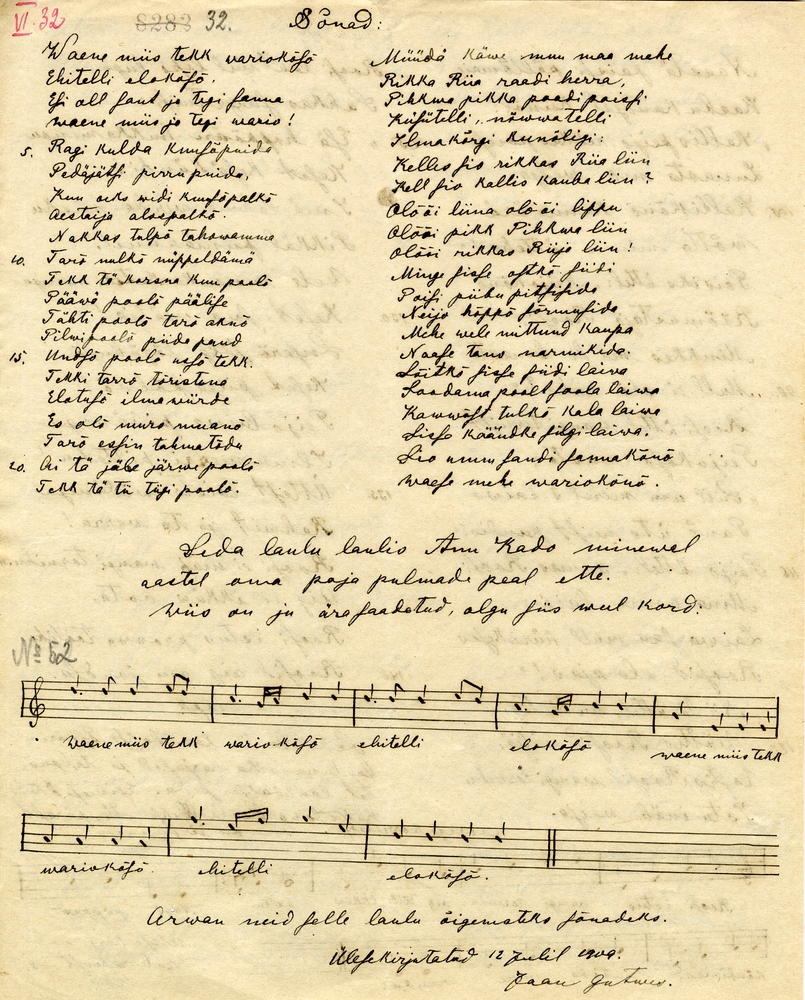 VI. 32
8282 32. Sõnad:
Waene miis tekk wariokõsõ
Ehitelli elokõsõ.
Esi all sant ja tegi sanna
waene miis jo tegi wario!
5. Ragi kulda kuusõpuida
Pedäjätsi pirru puida,
Kuu oks widi kuusõpalkõ
Aestaija alospalkõ.
Nakkas talpõ tahowamma
10. Tarõ nulkõ nüppeldämä
Tekk tä korsna kuu poolõ
Pääwä poolõ päälise
Tähti poolõ tarõ aknõ
Pilwi poolõ piida pand
15. Undsõ poolõ ussõ tekk.
Tekki tarrõ tõristena
Elotusõ ilma würde
Es olõ muro muianõ
Tarõ essin tahmatedu
20. Ai tä jäbe järwe poolõ
Tekk tä tii tiigi poolõ.
Müüdä käwe muu maa mehe
Rikka Riia raadi herra,
Pihkwa pikka poodi poissi
Küsütelli, nõwwatelli
Ilmakõrgi kunõligi:
Kelles sio rikkas Riia liin
Kell sio kallis kauba liin?
Olõõi liina olõõi lippu
Olõõi pikk Pihkwa liin
Olõõi rikkas Riija liin!
Minge sisse ostkõ siidi
Poisi piibu pitsisida
Neijo hõppõ sõrmusida
Mehe wele mittund kaupa
Naase tanu narmikida.
Sõitkõ sisse siidi laiwa
Soodama poolt soola laiwa
Kawwõst tulkõ kala laiwa
Sisse käändke silgi laiwa.
Sio umm sandi sannakõnõ
waese mehe wariokõnõ.
Seda laulu laulis Ann Kado minewal
aastal oma poja pulmade peal ette.
Wiis on ju ära saadetud, olgu siis weel kord:
№ 52
waene miis tekk wariokõsõ ehitelli elokõsõ waene miis tekk
wariokõsõ ehitelli elokõsõ.
Arwan neid selle laulu õigemateks sõnadeks.
Ülesse kirjutatud 12 Julil 1909.
Jaan Gutwes.